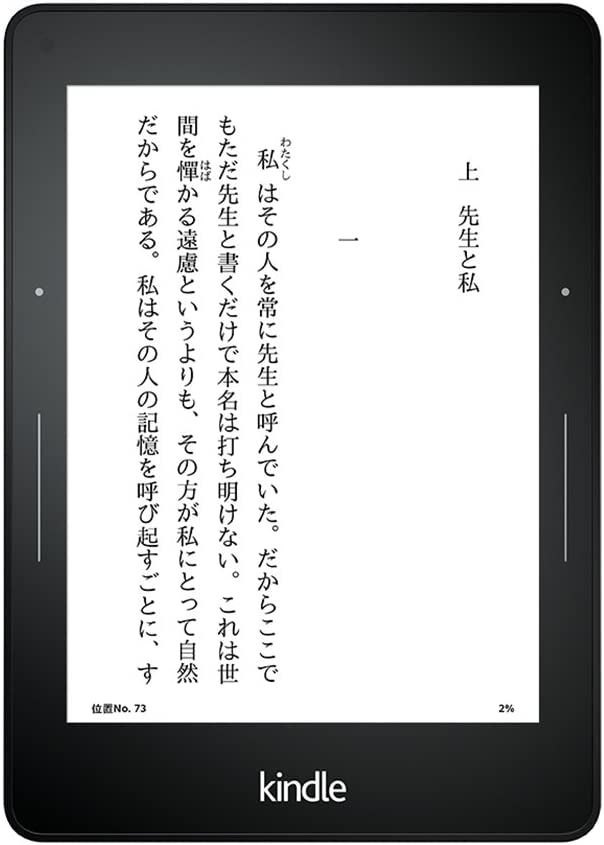 上 先生と私
一
私はその人を常に先生と呼んでいた。だからここで
わたくし
もただ先生と書くだけで本名は打ち明けない。これは世
間を憚かる遠慮というよりも、その方が私にとって自然
はば
だからである。私はその人の記憶を呼び起すごとに、す
位置No. 73
2%
kindle